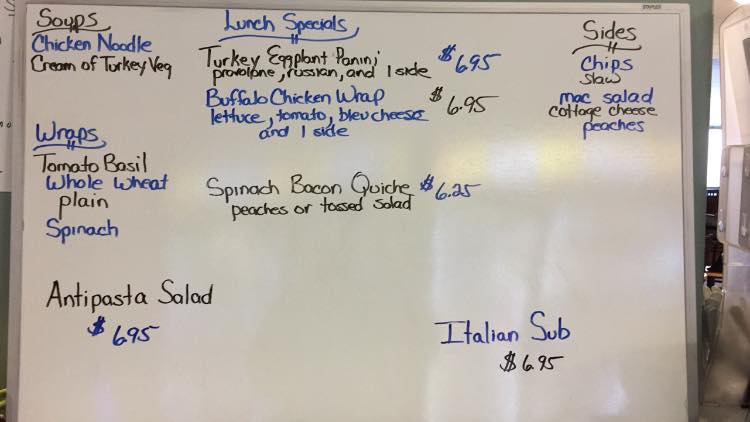 Soups
Chicken Noodle
Cream of Turkey Veg
Wraps
Tomato Basil
Whole Wheat
plain
Spinach
Lunch Specials
Turkey Eggplant Panini $6.95
provolone, russian, and 1 side
Buffalo Chicken Wrap $6.95
lettuce, tomato, bleu cheese
and 1 side
Spinach Bacon Quiche $6.25
peaches or tossed salad
Sides
Chips
Slaw
mac salad
cottage cheese
peaches
Antipasta Salad
$6.95
Italian Sub
$6.95